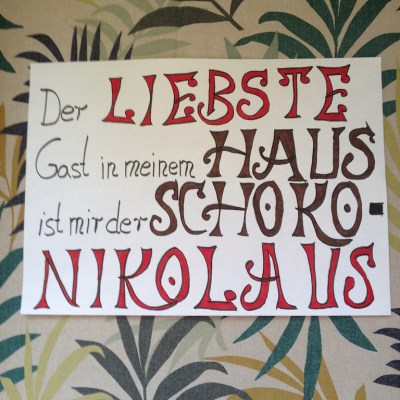 Der LIEBSTE
Gast in meinem HAUS
ist mir der SCHOKO-
NIKOLAUS